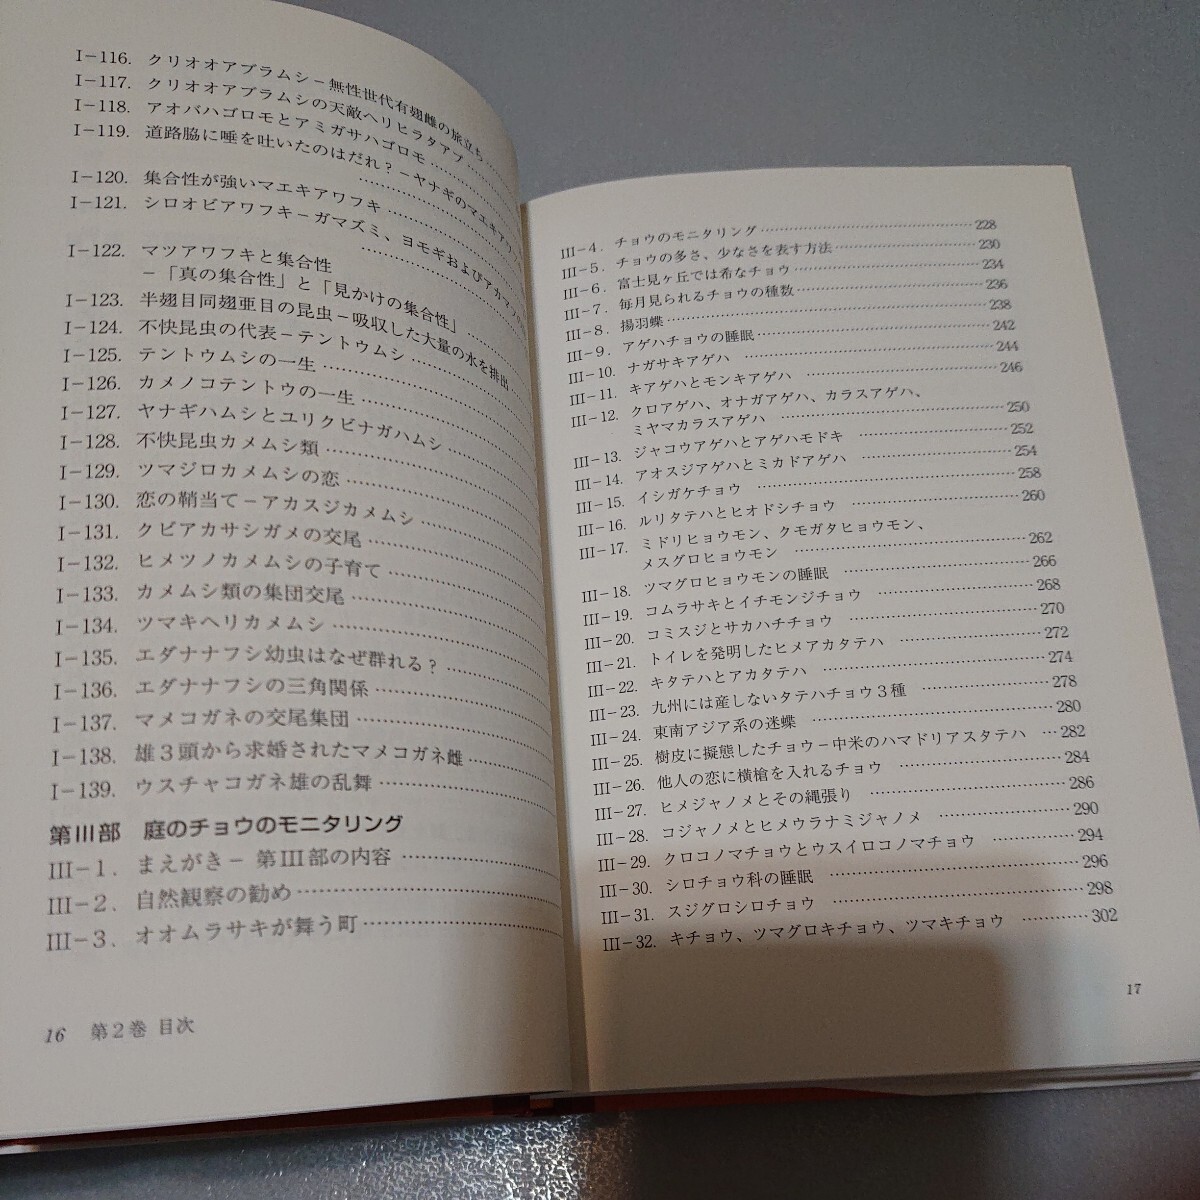 I－116. クリオオアブラムシ－無性世代有翅雌の旅立ち……
I－117. クリオオアブラムシの天敵ヘリヒラタアブ……
I－118. アオバハゴロモとアミガサハゴロモ……
I－119. 道路脇に唾を吐いたのはだれ？－ヤナギのマエキアワ
I－120. 集合性が強いマエキアワフキ……
I－121. シロオビアワフキ－ガマズミ、ヨモギおよびアカマツの
I－122. マツアワフキと集合性
－「真の集合性」と「見かけの集合性」……
I－123. 半翅目同翅亜目の昆虫－吸収した大量の水を排出
I－124. 不快昆虫の代表－テントウムシ……
I－125. テントウムシの一生……
I－126. カメノコテントウの一生……
I－127. ヤナギハムシとユリクビナガハムシ……
I－128. 不快昆虫カメムシ類……
I－129. ツマジロカメムシの恋……
I－130. 恋の鞘当て－アカスジカメムシ……
I－131. クビアカサシガメの交尾……
I－132. ヒメツノカメムシの子育て……
I－133. カメムシ類の集団交尾……
I－134. ツマキヘリカメムシ……
I－135. エダナナフシ幼虫はなぜ群れる？……
I－136. エダナナフシの三角関係……
I－137. マメコガネの交尾集団……
I－138. 雄３頭から求婚されたマメコガネ雌……
I－139. ウスチャコガネ雄の乱舞……
第III部　庭のチョウのモニタリング
III－1. まえがき－ 第III部の内容……
III－2. 自然観察の勧め……
III－3. オオムラサキが舞う町……
16 第２巻 目次
III－4. チョウのモニタリング……228
III－5. チョウの多さ、少なさを表す方法……230
III－6. 富士見ヶ丘では希なチョウ……234
III－7. 毎月見られるチョウの種数……236
III－8. 揚羽蝶……238
III－9. アゲハチョウの睡眠……242
III－10. ナガサキアゲハ……244
III－11. キアゲハとモンキアゲハ……246
III－12. クロアゲハ、オナガアゲハ、カラスアゲハ、
ミヤマカラスアゲハ……250
III－13. ジャコウアゲハとアゲハモドキ……252
III－14. アオスジアゲハとミカドアゲハ……254
III－15. イシガケチョウ……258
III－16. ルリタテハとヒオドシチョウ……260
III－17. ミドリヒョウモン、クモガタヒョウモン、
メスグロヒョウモン……262
III－18. ツマグロヒョウモンの睡眠……266
III－19. コムラサキとイチモンジチョウ……268
III－20. コミスジとサカハチチョウ……270
III－21. トイレを発明したヒメアカタテハ……272
III－22. キタテハとアカタテハ……274
III－23. 九州には産しないタテハチョウ３種……278
III－24. 東南アジア系の迷蝶……280
III－25. 樹皮に擬態したチョウ－中米のハマドリアスタテハ…282
III－26. 他人の恋に横槍を入れるチョウ……284
III－27. ヒメジャノメとその縄張り……286
III－28. コジャノメとヒメウラナミジャノメ……290
III－29. クロコノマチョウとウスイロコノマチョウ……294
III－30. シロチョウ科の睡眠……296
III－31. スジグロシロチョウ……298
III－32. キチョウ、ツマグロキチョウ、ツマキチョウ……302
17